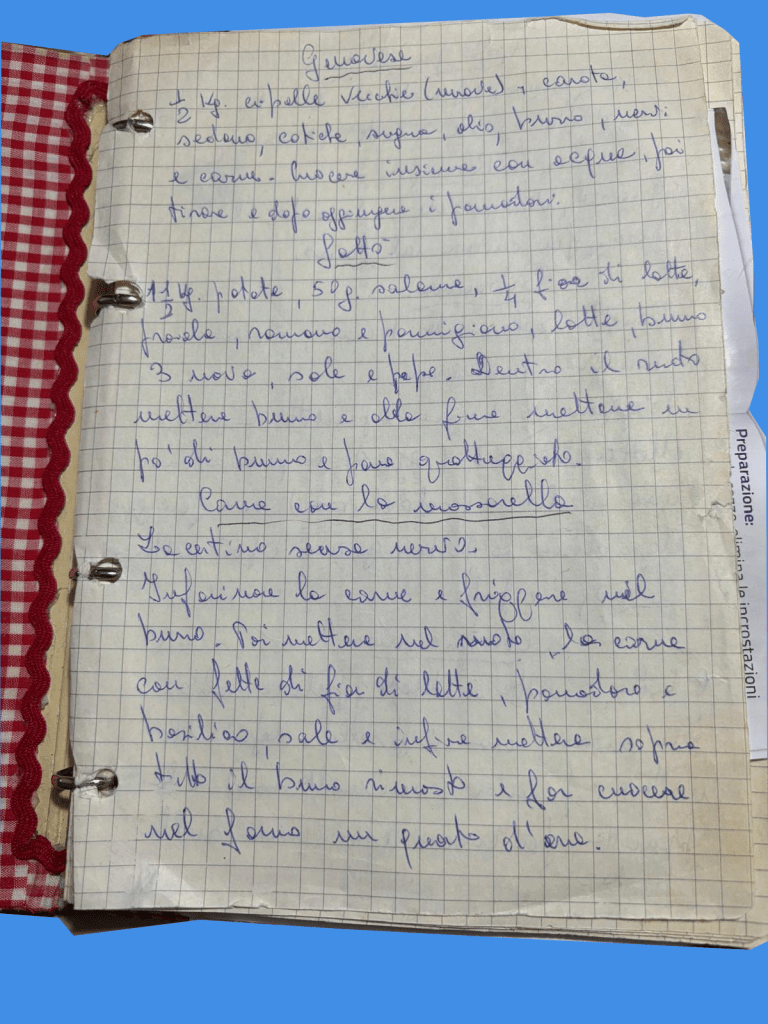 Genovese
1/2 Kg. cipolle vecchie (ramate), carota,
sedano, cotiche, sugna, olio, burro, nervi
e carne. Cuocere insieme con acqua, poi
tirare e dopo aggiungere i pomodori.
Gattò
1 1/2 Kg. patate, 50 g. salame, 1/4 fior di latte,
provola, romano e parmigiano, latte, burro
3 uova, sale e pepe. Dentro il ruoto
mettere burro e alla fine mettere un
po' di burro e pane grattuggiato.
Carne con la mozzarella
Lacertino senza nervo.
Infarinare la carne e friggere nel
burro. Poi mettere nel ruoto la carne
con fette di fior di latte, pomodoro e
basilico, sale e infine mettere sopra
tutto il burro rimasto e far cuocere
nel forno un quarto d'ora.
Preparazione:
elimina le incrostazioni